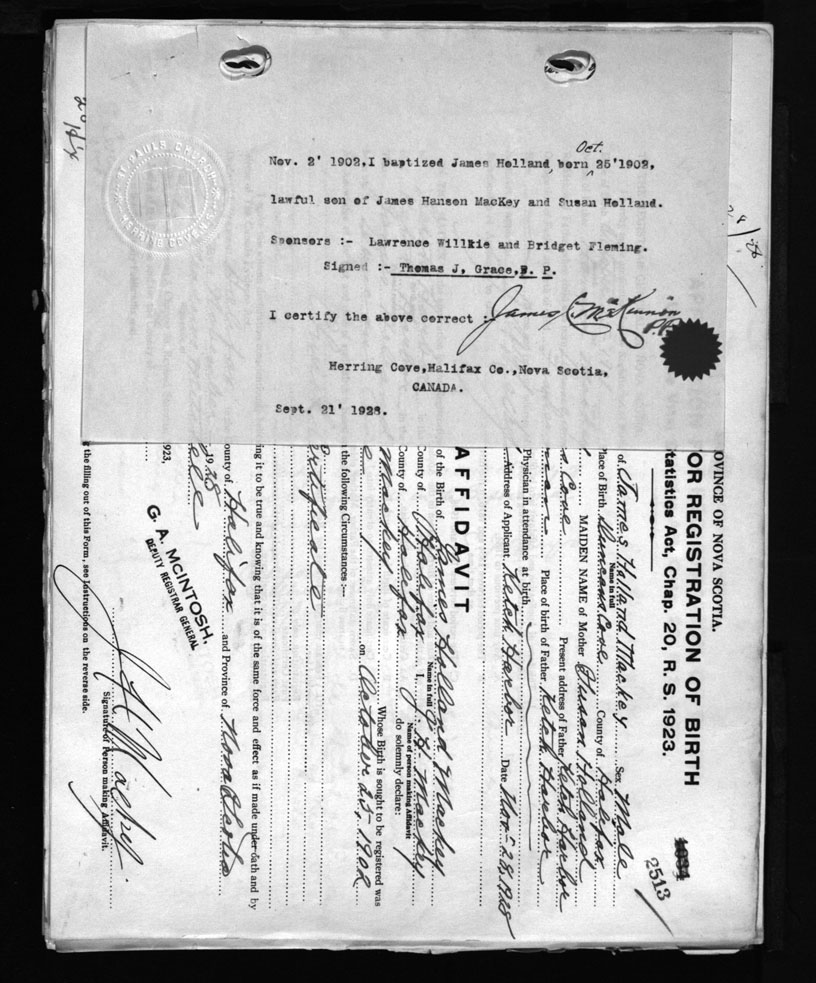 28/4
ST PAULS CHURCH
HERRING COVE N.S.
Oct.
Nov. 2' 1902.I baptized James Holland, born ^ 25'1902,
lawful son of James Hanson MacKey and Susan Holland.
Sponsors :- Lawrence Willkie and Bridget Fleming.
Signed :- Thomas J, Grace, P. P.
I certify the above correct : James C. McKinnon
P.P.
Herring Cove,Halifax Co.,Nova Scotia,
CANADA.
Sept. 21' 1928.
OVINCE OF NOVA SCOTIA.
OR REGISTRATION OF BIRTH
tatistics Act, Chap. 20, R. S. 1923.
1634
2513
of James Holland Mackey Sex Male
Name in full
lace of Birth Duncans Cove County of Halifax
MAIDEN NAME of Mother Susan Holland
Cove Present address of Father Ketch Harbor
Place of birth of Father Ketch Harbor
Physician in attendance at birth
Address of Applicant Ketch Harbor Date Nov 28, 1928
AFFIDAVIT
of the Birth of James Holland Mackey
Name in full
County of Halifax I, J. H. Mackey
Name of person making Affidavit
County of Halifax do solemnly declare:
Whose Birth is sought to be registered was
Mackey
on October 25, 1902
n the following Circumstances :—
ertificate
ing it to be true and knowing that it is of the same force and effect as if made under oath and by
ounty of Halifax and Province of Nova Scotia
1928
923,
G. A. McINTOSH,
DEPUTY REGISTRAR GENERAL
J H Mackey
Signature of Person making Affidavit.
g the filling out of this Form, see Instructions on the reverse side.